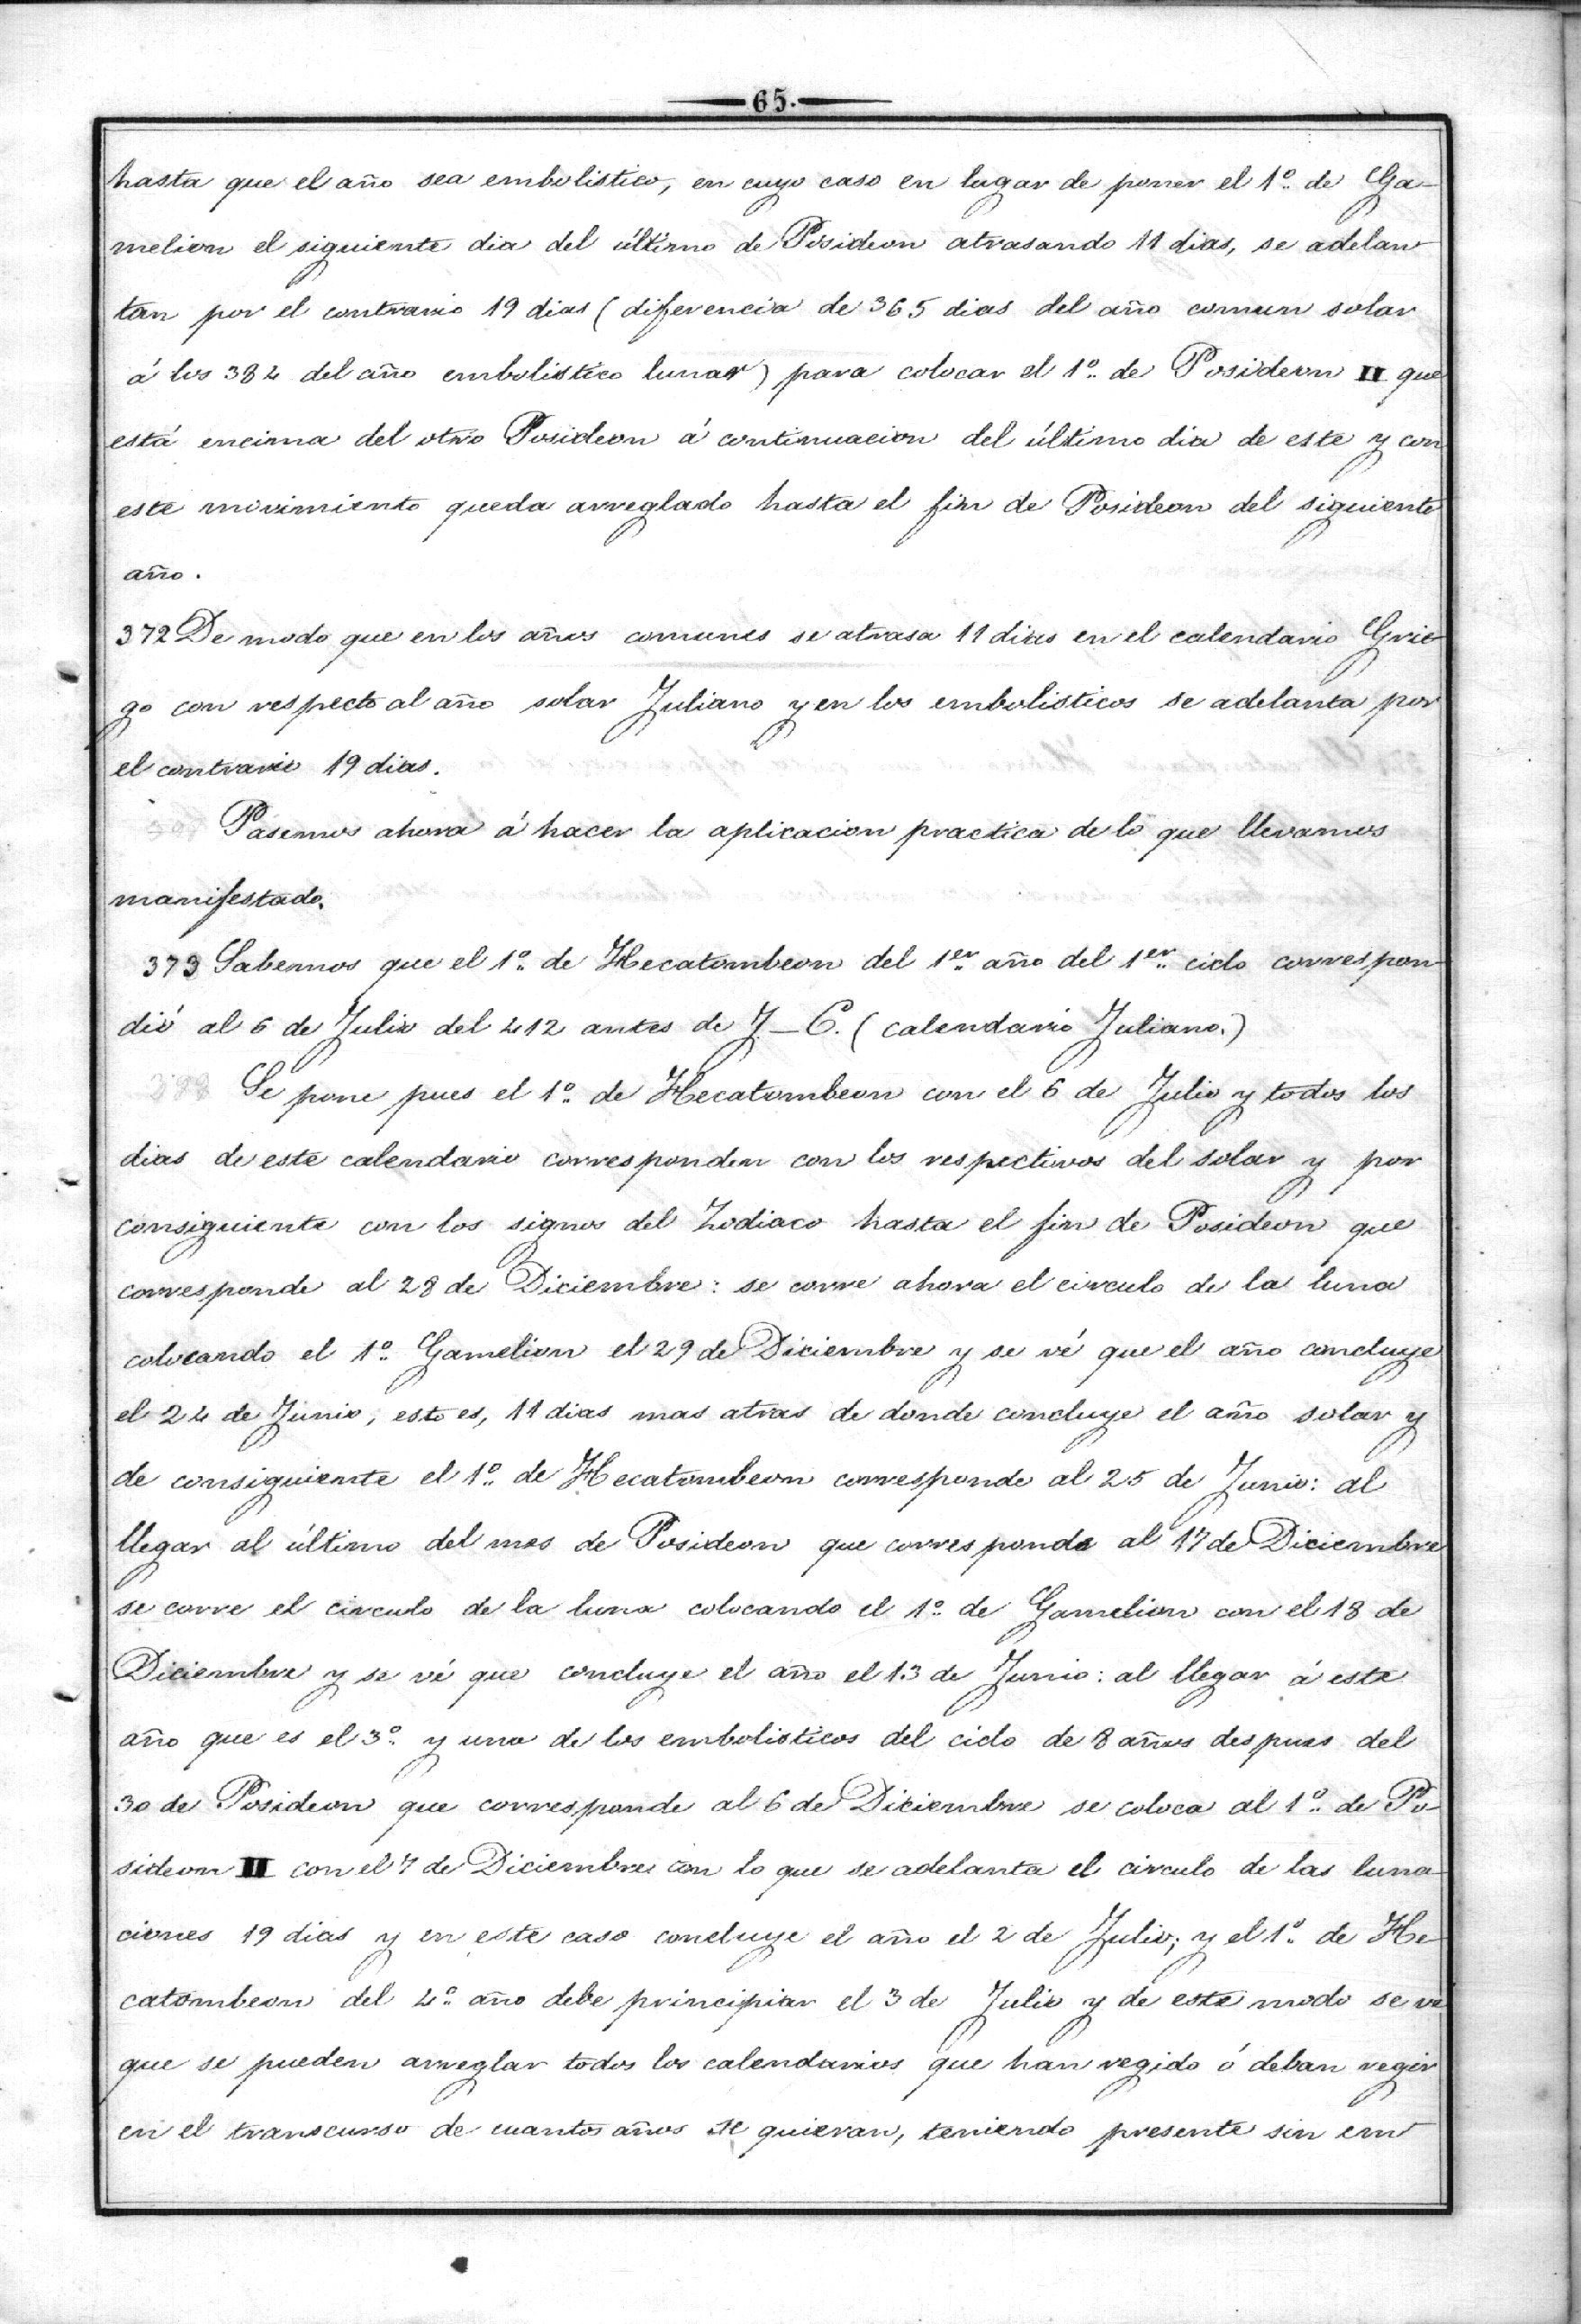 65.
hasta que el año sea embolistico, en cuyo caso en lugar de poner el 1º de Ga-
melion el siguiente dia del último de Posideon atrasando 11 dias, se adelan-
tan por el contrario 19 dias (diferencia de 365 dias del año comun solar
á los 384 del año embolistico lunar) para colocar el 1º de Posideon II que
está encima del otro Posideon á continuacion del último dia de este y con
este movimiento queda arreglado hasta el fin de Posideon del siguiente
año.
372 De modo que en los años comunes se atrasa 11 dias en el calendario Grie-
go con respecto al año solar Juliano y en los embolisticos se adelanta por
el contrario 19 dias.
Pasemos ahora á hacer la aplicacion practica de lo que llevamos
manifestado.
373 Sabemos que el 1º de Hecatombeon del 1er año del 1er ciclo correspon-
dió al 6 de Julio del 412 antes de J-C. (calendario Juliano.)
Se pone pues el 1º de Hecatombeon con el 6 de Julio y todos los
dias de este calendario corresponden con los respectivos del solar y por
consiguiente con los signos del Zodiaco hasta el fin de Posideon que
corresponde al 28 de Diciembre: se corre ahora el circulo de la luna
colocando el 1º Gamelion el 29 de Diciembre y se vé que el año concluye
el 24 de Junio, esto es, 11 dias mas atras de donde concluye el año solar y
de consiguiente el 1º de Hecatombeon corresponde al 25 de Junio: al
llegar al último del mes de Posideon que corresponde al 17 de Diciembre
se corre el circulo de la luna colocando el 1º de Gamelion con el 18 de
Diciembre y se vé que concluye el año el 13 de Junio: al llegar á este
año que es el 3º y uno de los embolisticos del ciclo de 8 años despues del
30 de Posideon que corresponde al 6 de Diciembre se coloca al 1º de Po-
sideon II con el 7 de Diciembre con lo que se adelanta el circulo de las luna-
ciones 19 dias y en este caso concluye el año el 2 de Julio; y el 1º de He-
catombeon del 4º año debe principiar el 3 de Julio y de este modo se vé
que se pueden arreglar todos los calendarios que han regido ó deban regir
en el transcurso de cuantos años se quieran, teniendo presente sin em-